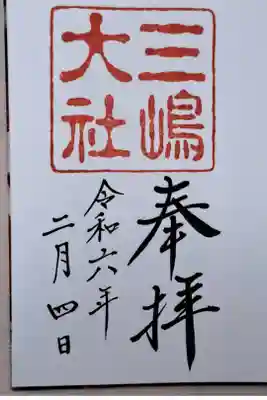 三嶋
大社
奉拝
令和六年
二月四日